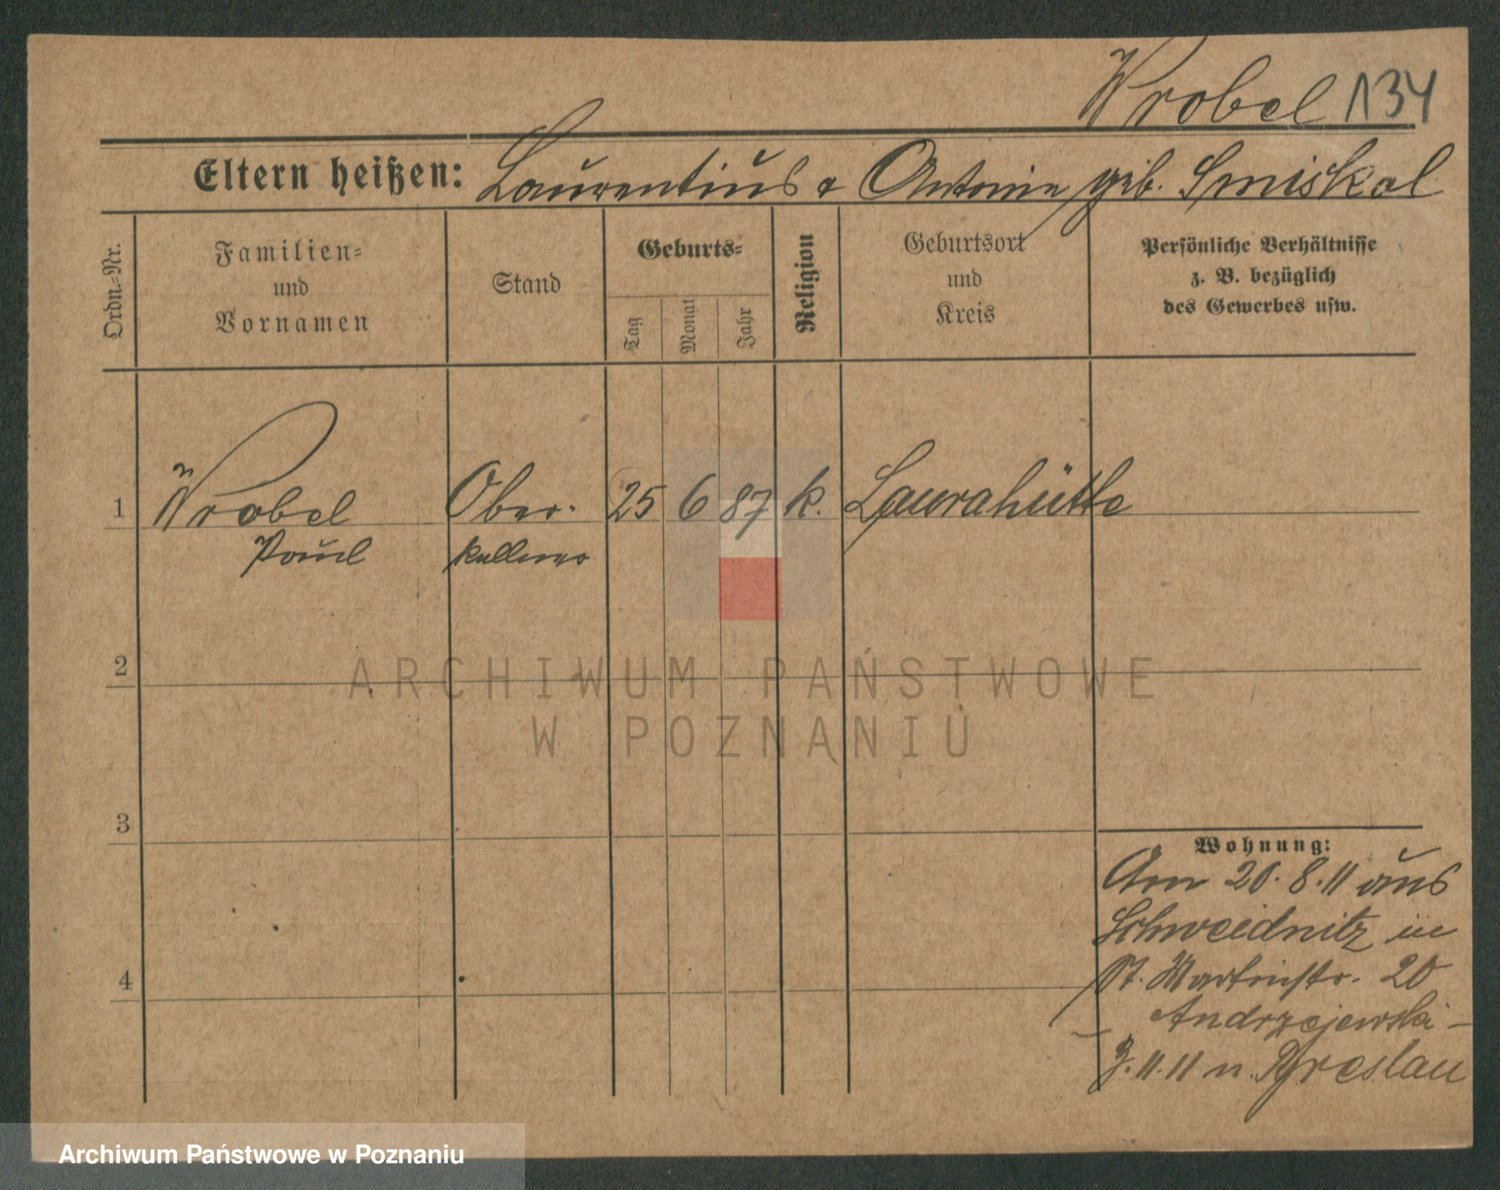 Wrobel 134
Eltern heißen: Laurentius & Antonie geb. Smiskol
Ordn.-Nr.
Familien-
und
Vornamen
Stand
Geburts-
Tag
Monat
Jahr
Religion
Geburtsort
und
Kreis
Persönliche Verhältnisse
z. B. bezüglich
des Gewerbes usw.
1 Wrobel Ober- 25 6 87 k. Laurahütte
Paul kellner
2
ARCHIWUM PAŃSTWOWE
W POZNANIU
3
Wohnung:
Am 20. 8. 11 aus
Schweidnitz in
St. Martinstr. 20
4
Andrzejewski
3. 11. 11 n. Breslau
Archiwum Państwowe w Poznaniu